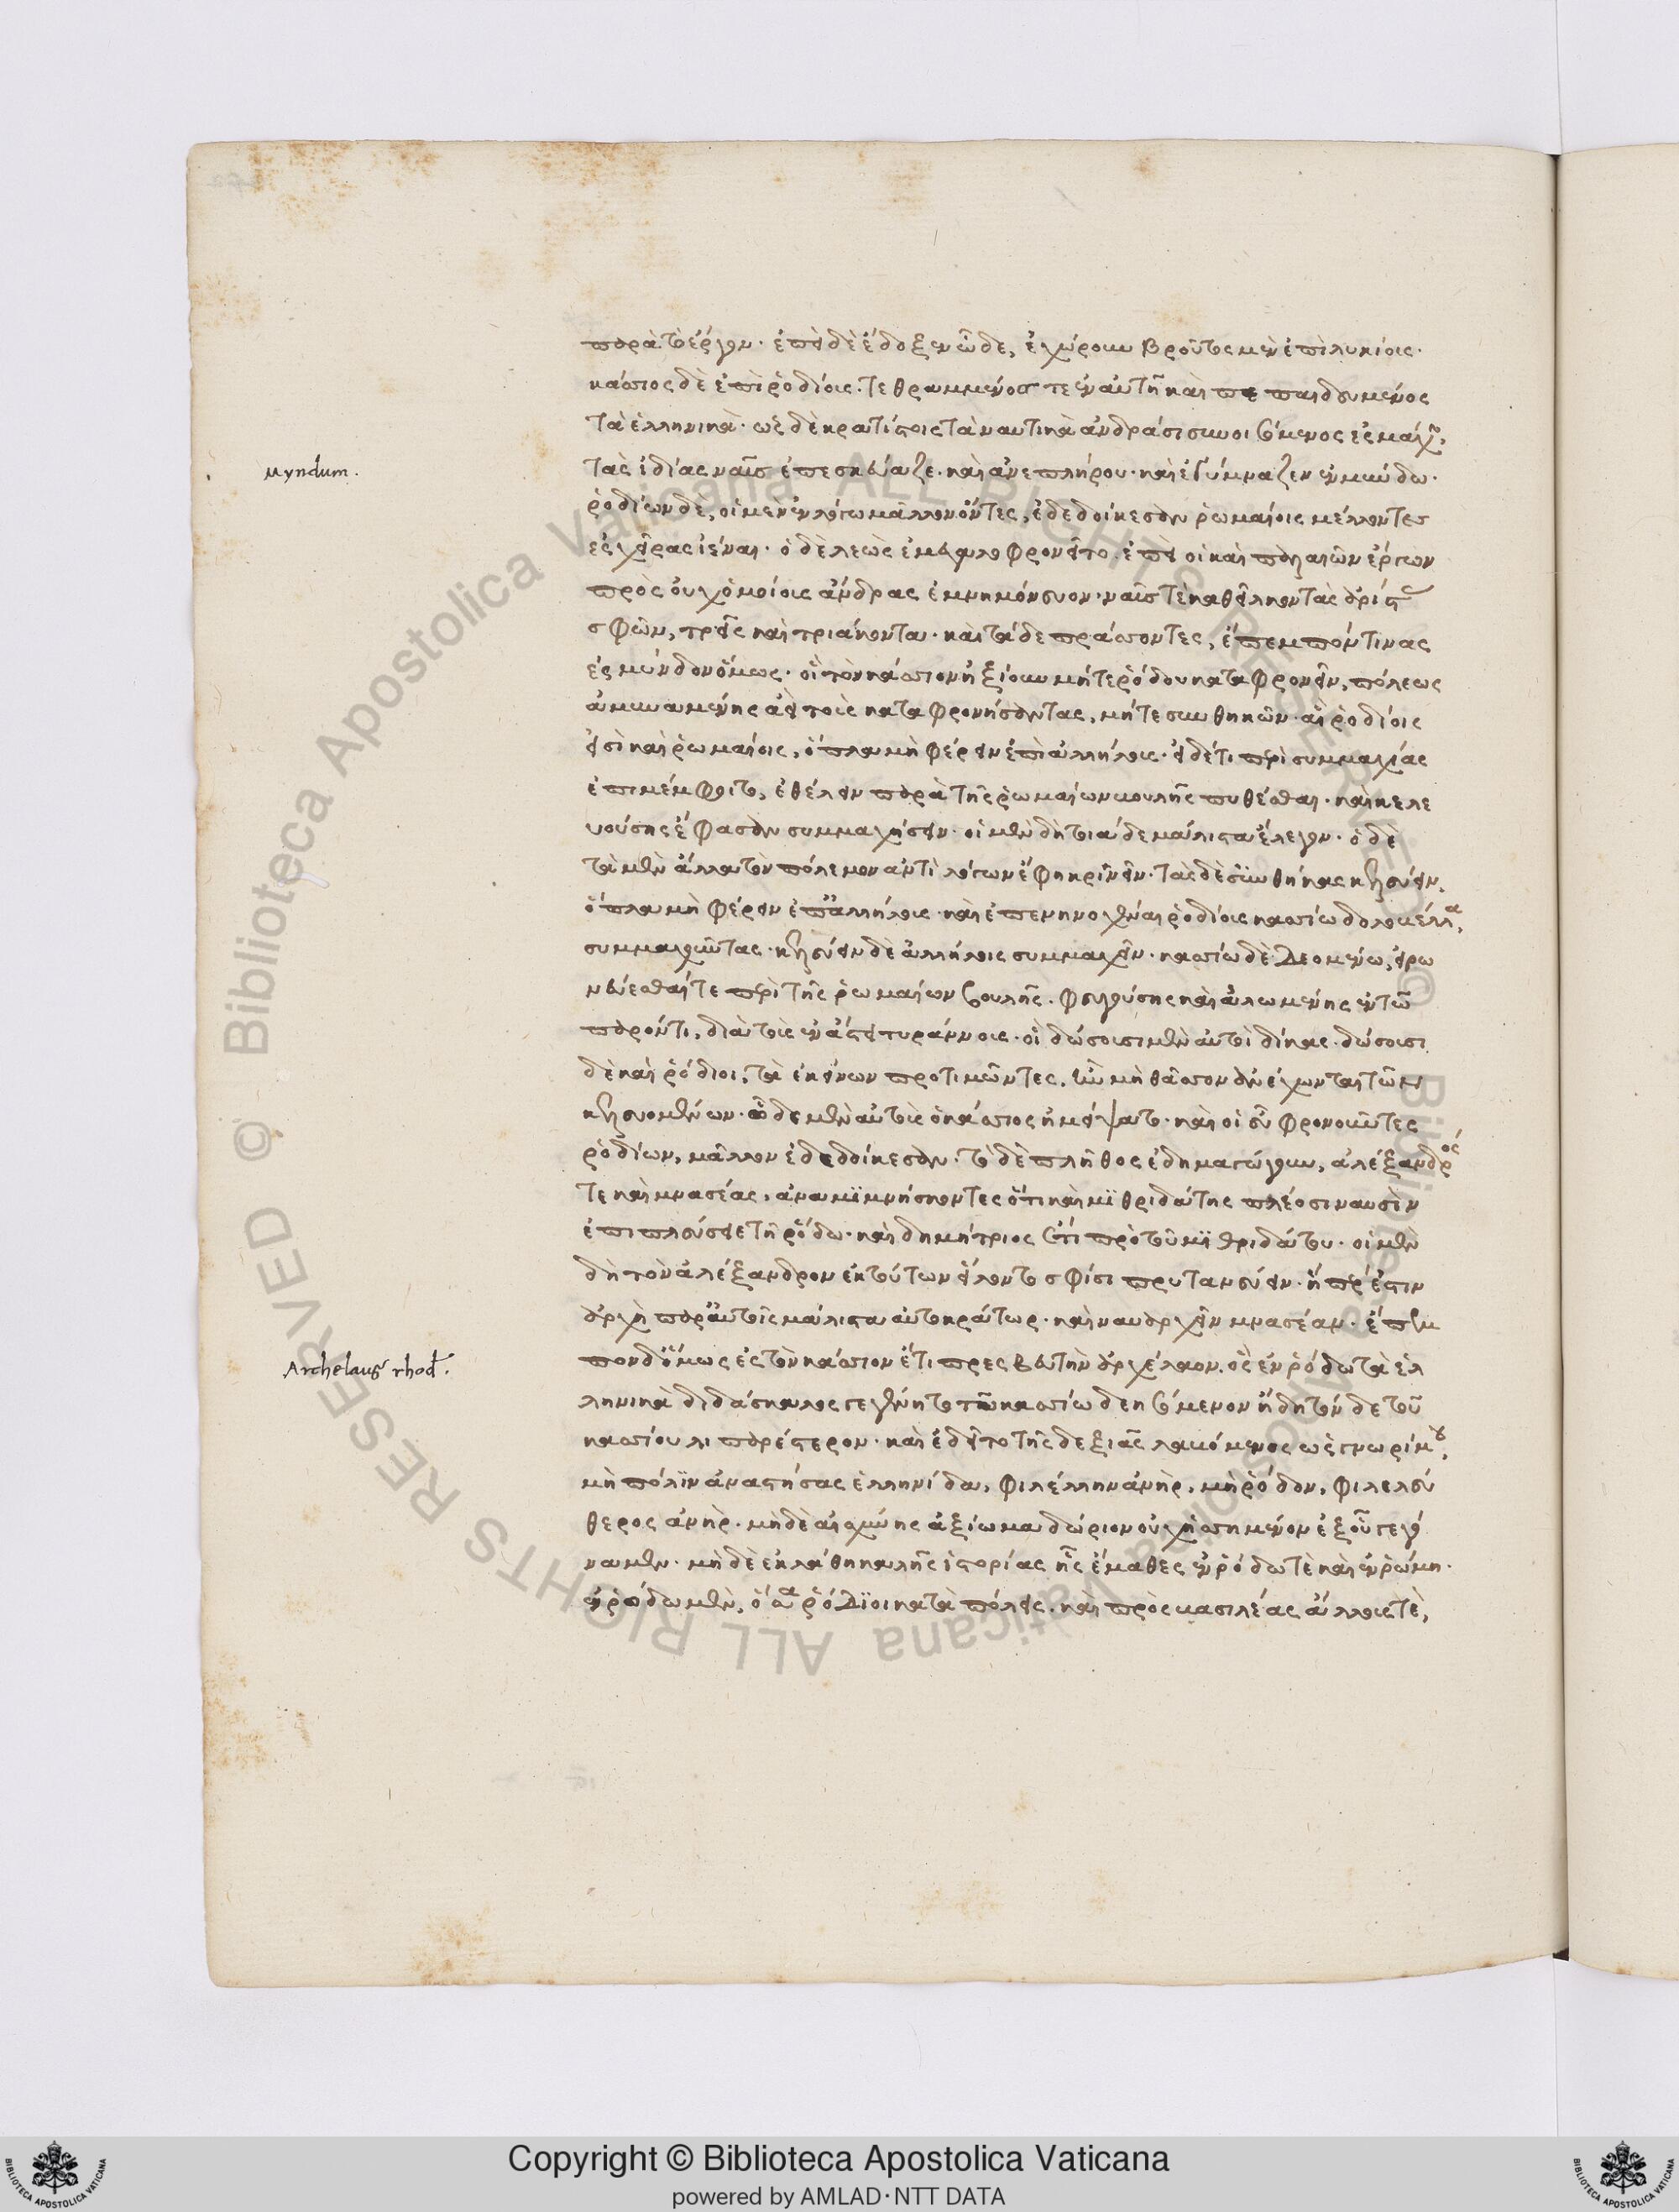 παρὰ τὸ ἔργον· ἐπεὶ δὲ ἔδοξεν ὧδε, ἐχώρουν βροῦτος μὲν ἐπὶ λυκίοις·
κάσσιος δὲ ἐπὶ ῥοδίοις· τεθραμμένος τε ἐν αὐτῇ καὶ πεπαιδευμένος
τὰ ἑλληνικά· ὡς δὲ κρατίστοις τὰ ναυτικὰ ἀνδράσι συνοισόμενος ἐς μάχην,
Myndum.
τὰς ἰδίας ναῦς ἐπεσκεύαζε· καὶ ἀνεπλήρου· καὶ ἐγύμναζεν ἐν μύνδω·
ῥοδίων δὲ, οἱ μὲν ἐν λόγω μᾶλλον ὄντες, ἐδεδοίκεσαν ῥωμαίοις μέλλοντες
ἐς χεῖρας ἰέναι· ὁ δὲ λεὼς ἐμεγαλοφρονεῖτο· ἐπεὶ οἱ καὶ παλαιῶν ἔργων
πρὸς οὐχ ὁμοίοις ἄνδρας ἐμνημόνευον· ναῦς τὲ καθεῖλκον τὰς ἀρίστας
σφῶν, τρεῖς καὶ τριάκοντα· καὶ τάδε πράσσοντες, ἔπεμπόν τινας
ἐς μύνδον ὅμως· οἳ τὸν κάσσιον ἠξίουν μήτε ῥόδου καταφρονεῖν, πόλεως
ἀμυναμένης ἀεὶ τοὺς καταφρονήσαντας, μήτε συνθηκῶν· αἳ ῥοδίοις
εἰσὶ καὶ ῥωμαίοις, ὅπλα μὴ φέρειν ἐπὶ ἀλλήλοις· εἰ δέ τι περὶ συμμαχίας
ἐπιμέμφοιτο, ἐθέλειν παρὰ τῆς ῥωμαίων βουλῆς πυθέσθαι· καὶ κελε
υούσης ἔφασαν συμμαχήσειν· οἱ μὲν δὴ τοιάδε μάλιστα ἔλεγον· ὁ δὲ
τὰ μὲν ἄλλα τὸν πόλεμον ἀντὶ λόγων ἔφη κρίνειν· τὰς δὲ συνθήκας κελεύειν,
ὅπλα μὴ φέρειν ἐπ' ἀλλήλοις· καὶ ἐπενηνοχέναι ῥοδίοις κασσίω δολοβέλλα,
συμμαχοῦντας· κελεύειν δὲ ἀλλήλοις συμμαχεῖν· κασσίω δὲ δεομένω, εἰρω
νεύεσθαί τε περὶ τῆς ῥωμαίων βουλῆς· φευγούσης καὶ ἁλωμένης ἐν τῶ
παρόντι, διὰ τοὺς ἐν ἄστει τυράννοις· οἳ δώσουσι μὲν αὐτοὶ δίκας· δώσουσι
δὲ καὶ ῥόδιοι, τὰ ἐκείνων προτιμῶντες, ἢν μὴ θᾶσσον ἀνέχωνται τῶν
κελευομένων· ὧδε μὲν αὐτοὺς ὁ κάσσιος ἠμείψατο· καὶ οἱ εὖ φρονοῦντες
ῥοδίων, μᾶλλον ἐδεδοίκεσαν· τὸ δὲ πλῆθος ἐδημαγώγουν, ἀλέξανδρός
τε καὶ μνασέας, ἀναμϊμνήσκοντες ὅτι καὶ μϊθριδάτης πλέοσι ναυσὶν
ἐπιπλεύσειε τῆ ῥόδω· καὶ δημήτριος ἔτι πρὸ τοῦ μϊθριδάτου· οἱ μὲν
δὴ τὸν ἀλέξανδρον ἐκ τούτων εἵλοντο σφίσι πρυτανεύειν· ἥπερ ἐστιν
ἀρχὴ παρ' αὐτοῖς μάλιστα αὐτοκράτωρ· καὶ ναυαρχεῖν μνασέαν· ἔπεμ
Archelaus rhod.
πον δ' ὅμως ἐς τὸν κάσσιον ἔτι πρεσβευτὴν ἀρχέλαον. ὃς ἐν ῥόδω τὰ ἑλ
ληνικὰ διδάσκαλος γεγένητο τῶ κασσίω δεησόμενον ἤδη τόνδε τοῦ
κασσίου λιπαρέστερον· καὶ ἐδεῖτο τῆς δεξιᾶς λαβόμενος ὡς γνωρίμου,
μὴ πόλϊν ἀναστήσας ἑλληνίδα, φιλέλλην ἀνὴρ, μὴ ῥόδον, φιλελεύ
θερος ἀνὴρ· μηδὲ αἰσχύνης ἀξίωμα δώριον οὐχ ἡσσημένον ἐξ οὗ γεγό
ναμεν· μηδὲ ἐκλάθη καλῆς ἱστορίας ἧς ἔμαθες ἐν ῥόδω τὲ καὶ ἐν ῥώμη·
ἐν ῥόδω μὲν, ὅσα ῥόδϊοι κατὰ πόλεις· καὶ πρὸς βασιλέας ἄλλοις τὲ,